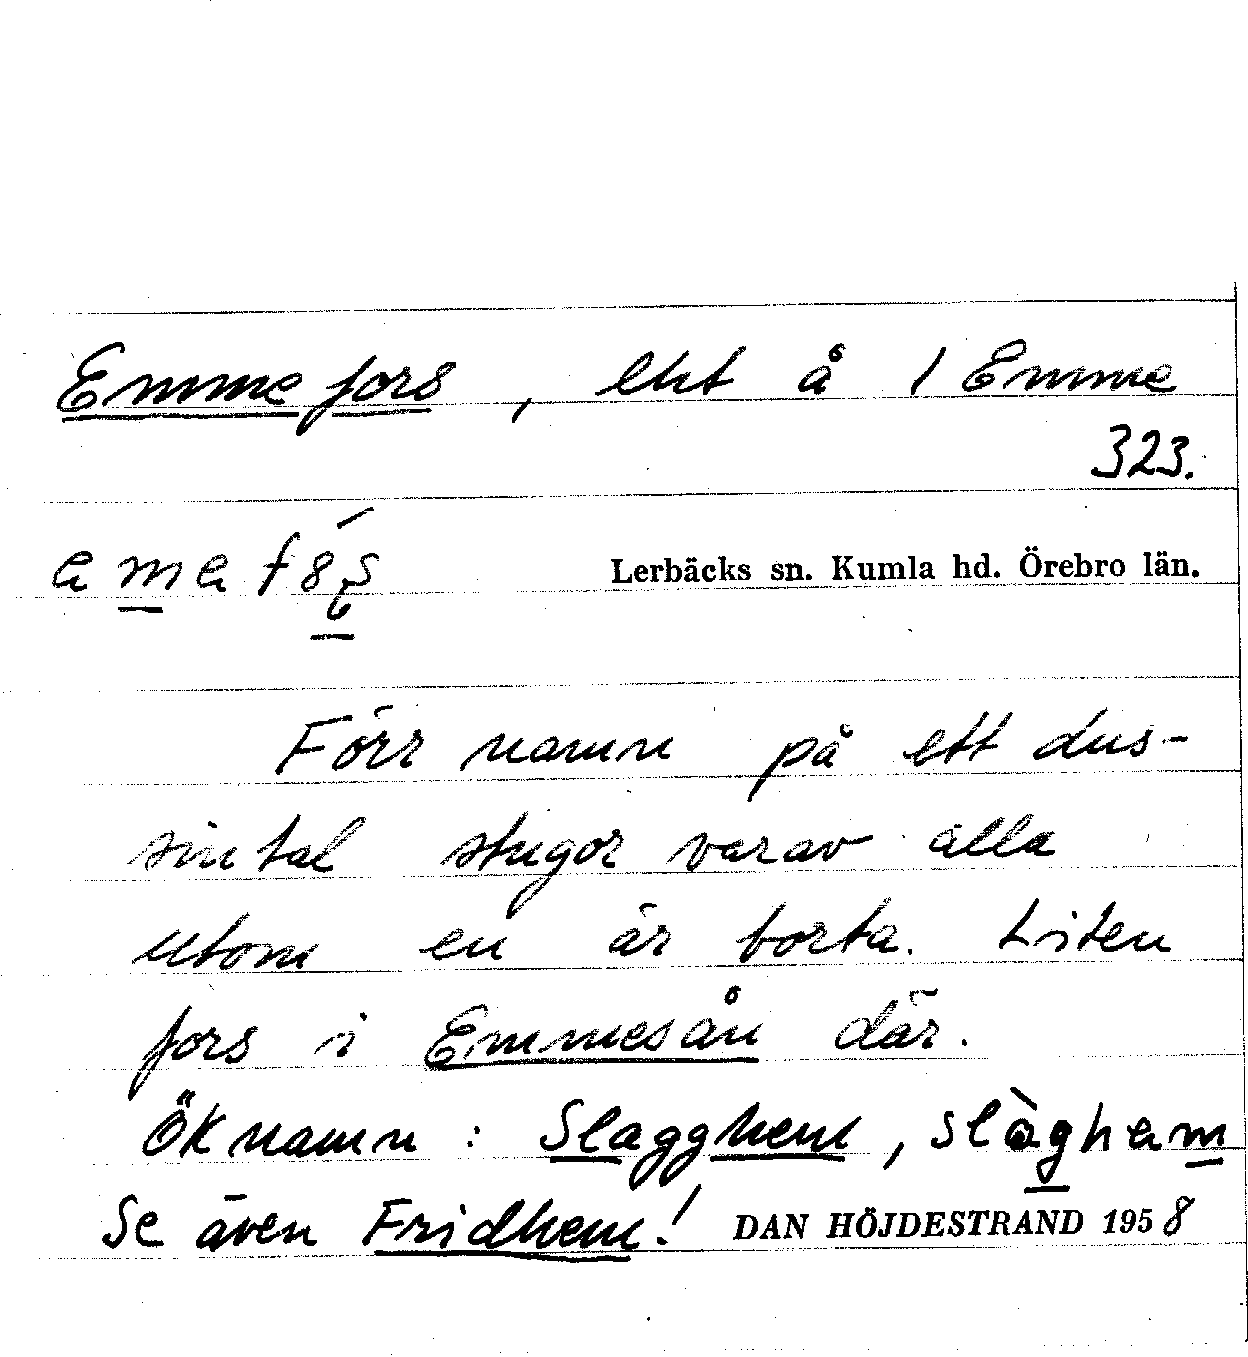 Emmefors, lht å 1 Emme
323.
Lerbäcks sn. Kumla hd. Örebro län.
Förr namn på ett dus-
sintal stugor varav alla
utom en är borta. Liten
fors i Emmesån där.
Öknamn: Slagghem, slàgham
Se även Fridhem! DAN HÖJDESTRAND 1958